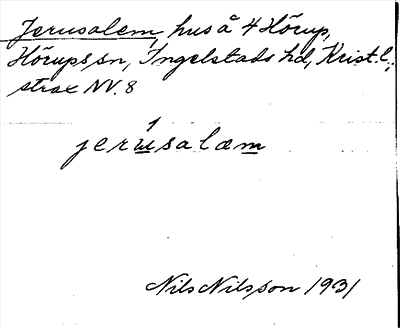 Jerusalem, hus å 4 Hörup,
Hörups sn, Ingelstads hd, Krist. l.;
strax NV. 8
jerúsalæm
Nils Nilsson 1931